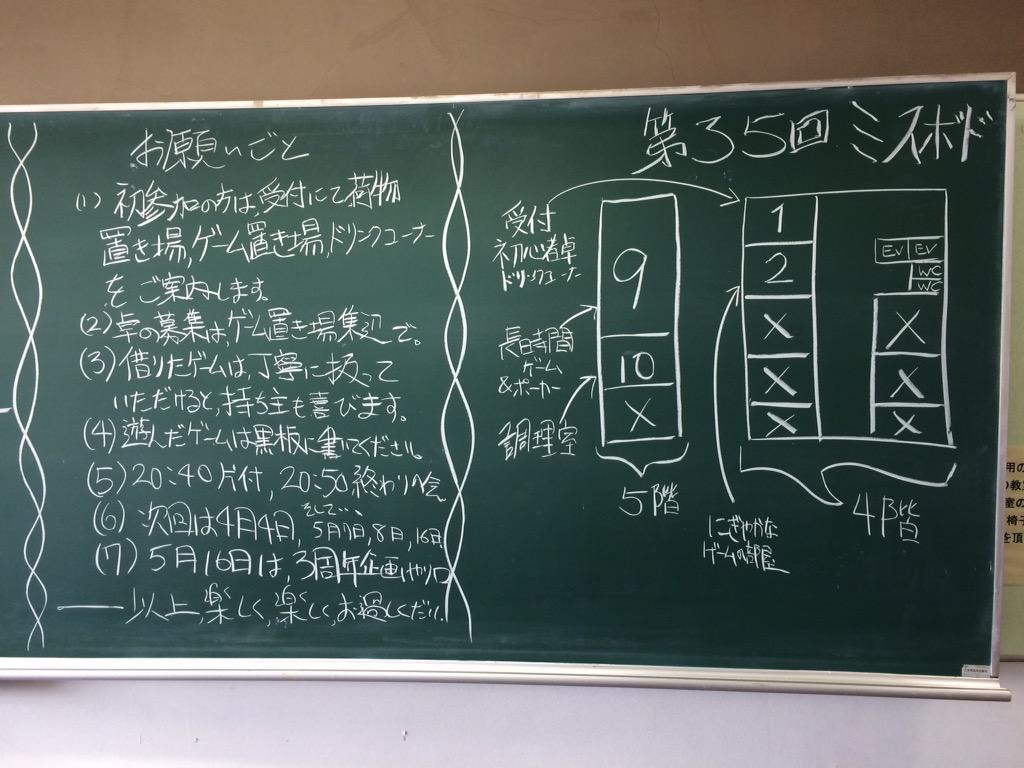 お願いごと
(1) 初参加の方は、受付にて荷物
置き場、ゲーム置き場、ドリンクコーナー
をご案内します。
(2) 卓の募集は、ゲーム置き場集辺で。
(3) 借りたゲームは、丁寧に扱って
いただけると、持ち主も喜びます。
(4) 遊んだゲームは黒板に書いてください。
(5) 20:40片付, 20:50終わりの会
そして…
(6) 次回は4月4日, 5月7日, 8日, 16日
(7) 5月16日は、3周年企画
以上、楽しく、楽しく、お過しください。
第35回 ミスボド
受付
初心者卓
ドリンクコーナー
長時間
ゲーム
&ポーカー
調理室
9
10
X
5階
1
2
X
X
X
EV EV
WC
WC
X
X
X
4階
にぎやかな
ゲームの部屋
用の
の教
室の
椅子
を頂